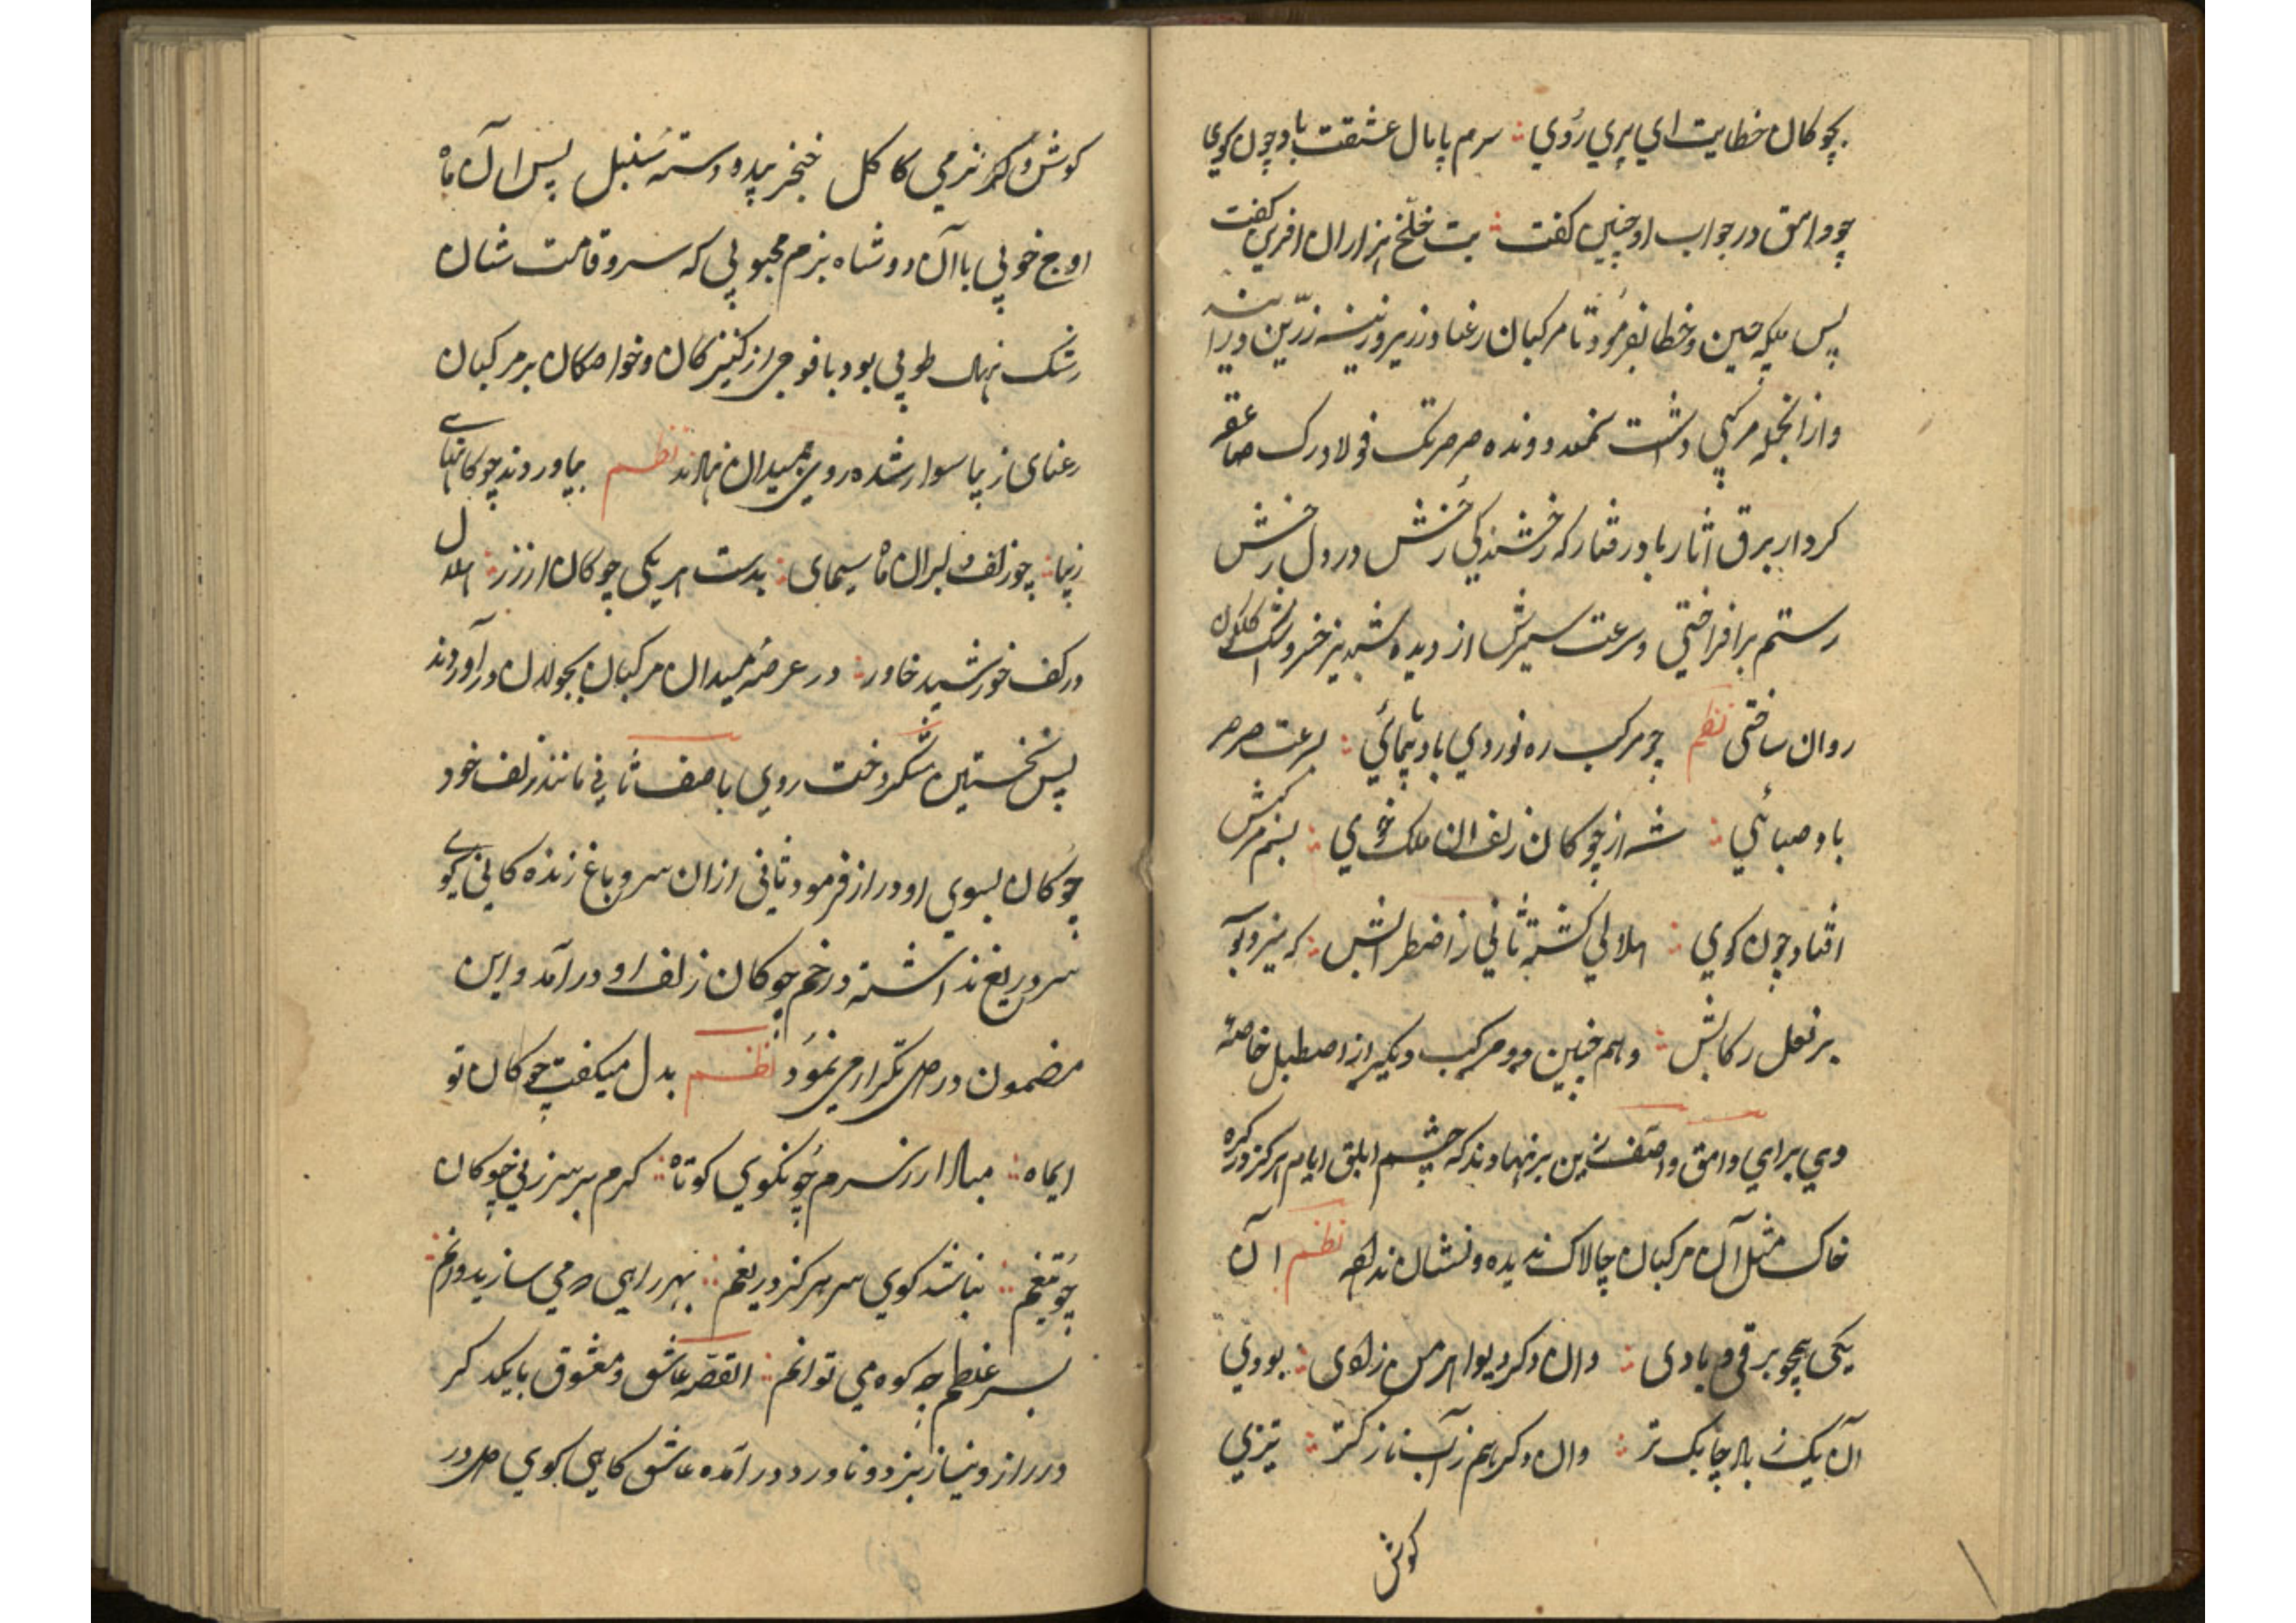 بچوکان خطایت ای پری روی سرم پامال عشقت باد چون کوی
چو وامق در جواب او چنین کفت بت خلّخ هزاران افرین کفت
پس ملکه چین و خطا بفرمود تا مرکبان رعنا در زیر و زینه زرّین در
وازانجمله مرکبی داشت دونده صرصر تک فولاد رک صاعقه
کردار برق اثار باد رفتار که رخشندکی رخش در دل رخش
رستم برافراختی و سرعت سیرش از دیده شبدیز خسرو اشک کلکون
روان ساختی نظم چو مرکب ره نوردی باد پیمائی بسرعت صرصر
باد صبائی شه از چوکان زلف ان ملک خوی بسم مرکبش
افتاد چون کوی هلالی کشته ثانی ز اضطرابش که
بر نعل رکابش و هم چنین دو مرکب دیکر از اصطبل خاصه
وی برای وامق واصف زین برنهادند که چشم ابلق ایام هرکز در کره
خاک مثل آن مرکبان چالاک ندیده و نشان نداده نظم آن
یکی همچو برقی و بادی وان دکر دیو اهرمن زادی بودی
آن یک ز باد چابک تر وان دکر هم ز آب نازکتر تیزی
کوش
کوش و نرمی کاکل خنجر بید و دسته سنبل پس ان ماه
اوج خوبی با آن دو شاه بزم محبوبی که سرو قامت شان
رشک نهال طوبی بود با فوجی از کنیزکان و خواصکان بر مرکبان
رعنای زیبا سوار شده روی بمیدان نهادند نظم بیاوردند چوکانهای
زیبا چو زلف دلبران ماه سیمای بدست هر یکی چوکان از زر هلال
در کف خورشید خاور در عرصه میدان مرکبان بجولان درآوردند
پس نخستین روی با صف ثانی مانند زلف خود
چوکان بسوی او دراز فرمود ثانی ازان سرو باغ زنده کانی کوی
سر دریغ نداشته در خم چوکان زلف او در آمد و این
مضمون در دل تکرار می نمود نظم بدل میکفت چوکان تو
ایماه مبادا از سرم چون کوی کوتاه کرم بر سر زنی چوکان
چو تیغم نباشد کوی سر هرکز دریغم بهر راهی که می سازی دوانم
بسر غلطم چو کوه می توانم القصه عاشق و معشوق بایکدکر
در راز و نیاز نرد و ناورد در آمده عاشق کاهی کوی دل در